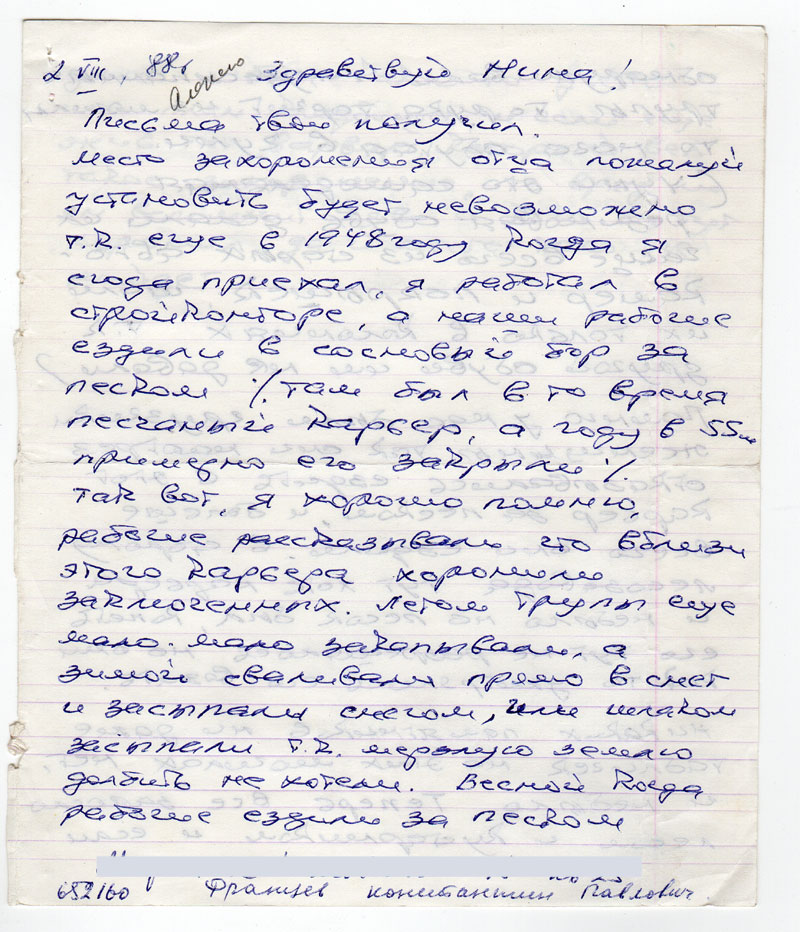 2 VIII, 88г Здравствуй Нина!
Письма твои получил.
место захоронения отца пожалуй
установить будет невозможно
т.к. еще в 1948 году когда я
сюда приехал, я работал в
стройконторе, а наши рабочие
ездили в сосновый бор за
песком % там был в то время
песчаный карьер, а году в 55м
примерно его закрыли %
так вот, я хорошо помню,
рабочие рассказывали что вблизи
этого карьера хоронили
заключенных. Летом трупы еще
мало-мало закапывали, а
зимой сваливали прямо в снег
и засыпали снегом, или шлаком
засыпали т.к. мерзлую землю
долбить не хотели. Весной когда
рабочие ездили за песком
652160 Францев Константин Павлович